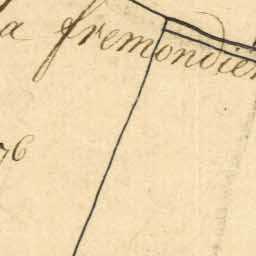 a fremondier
76